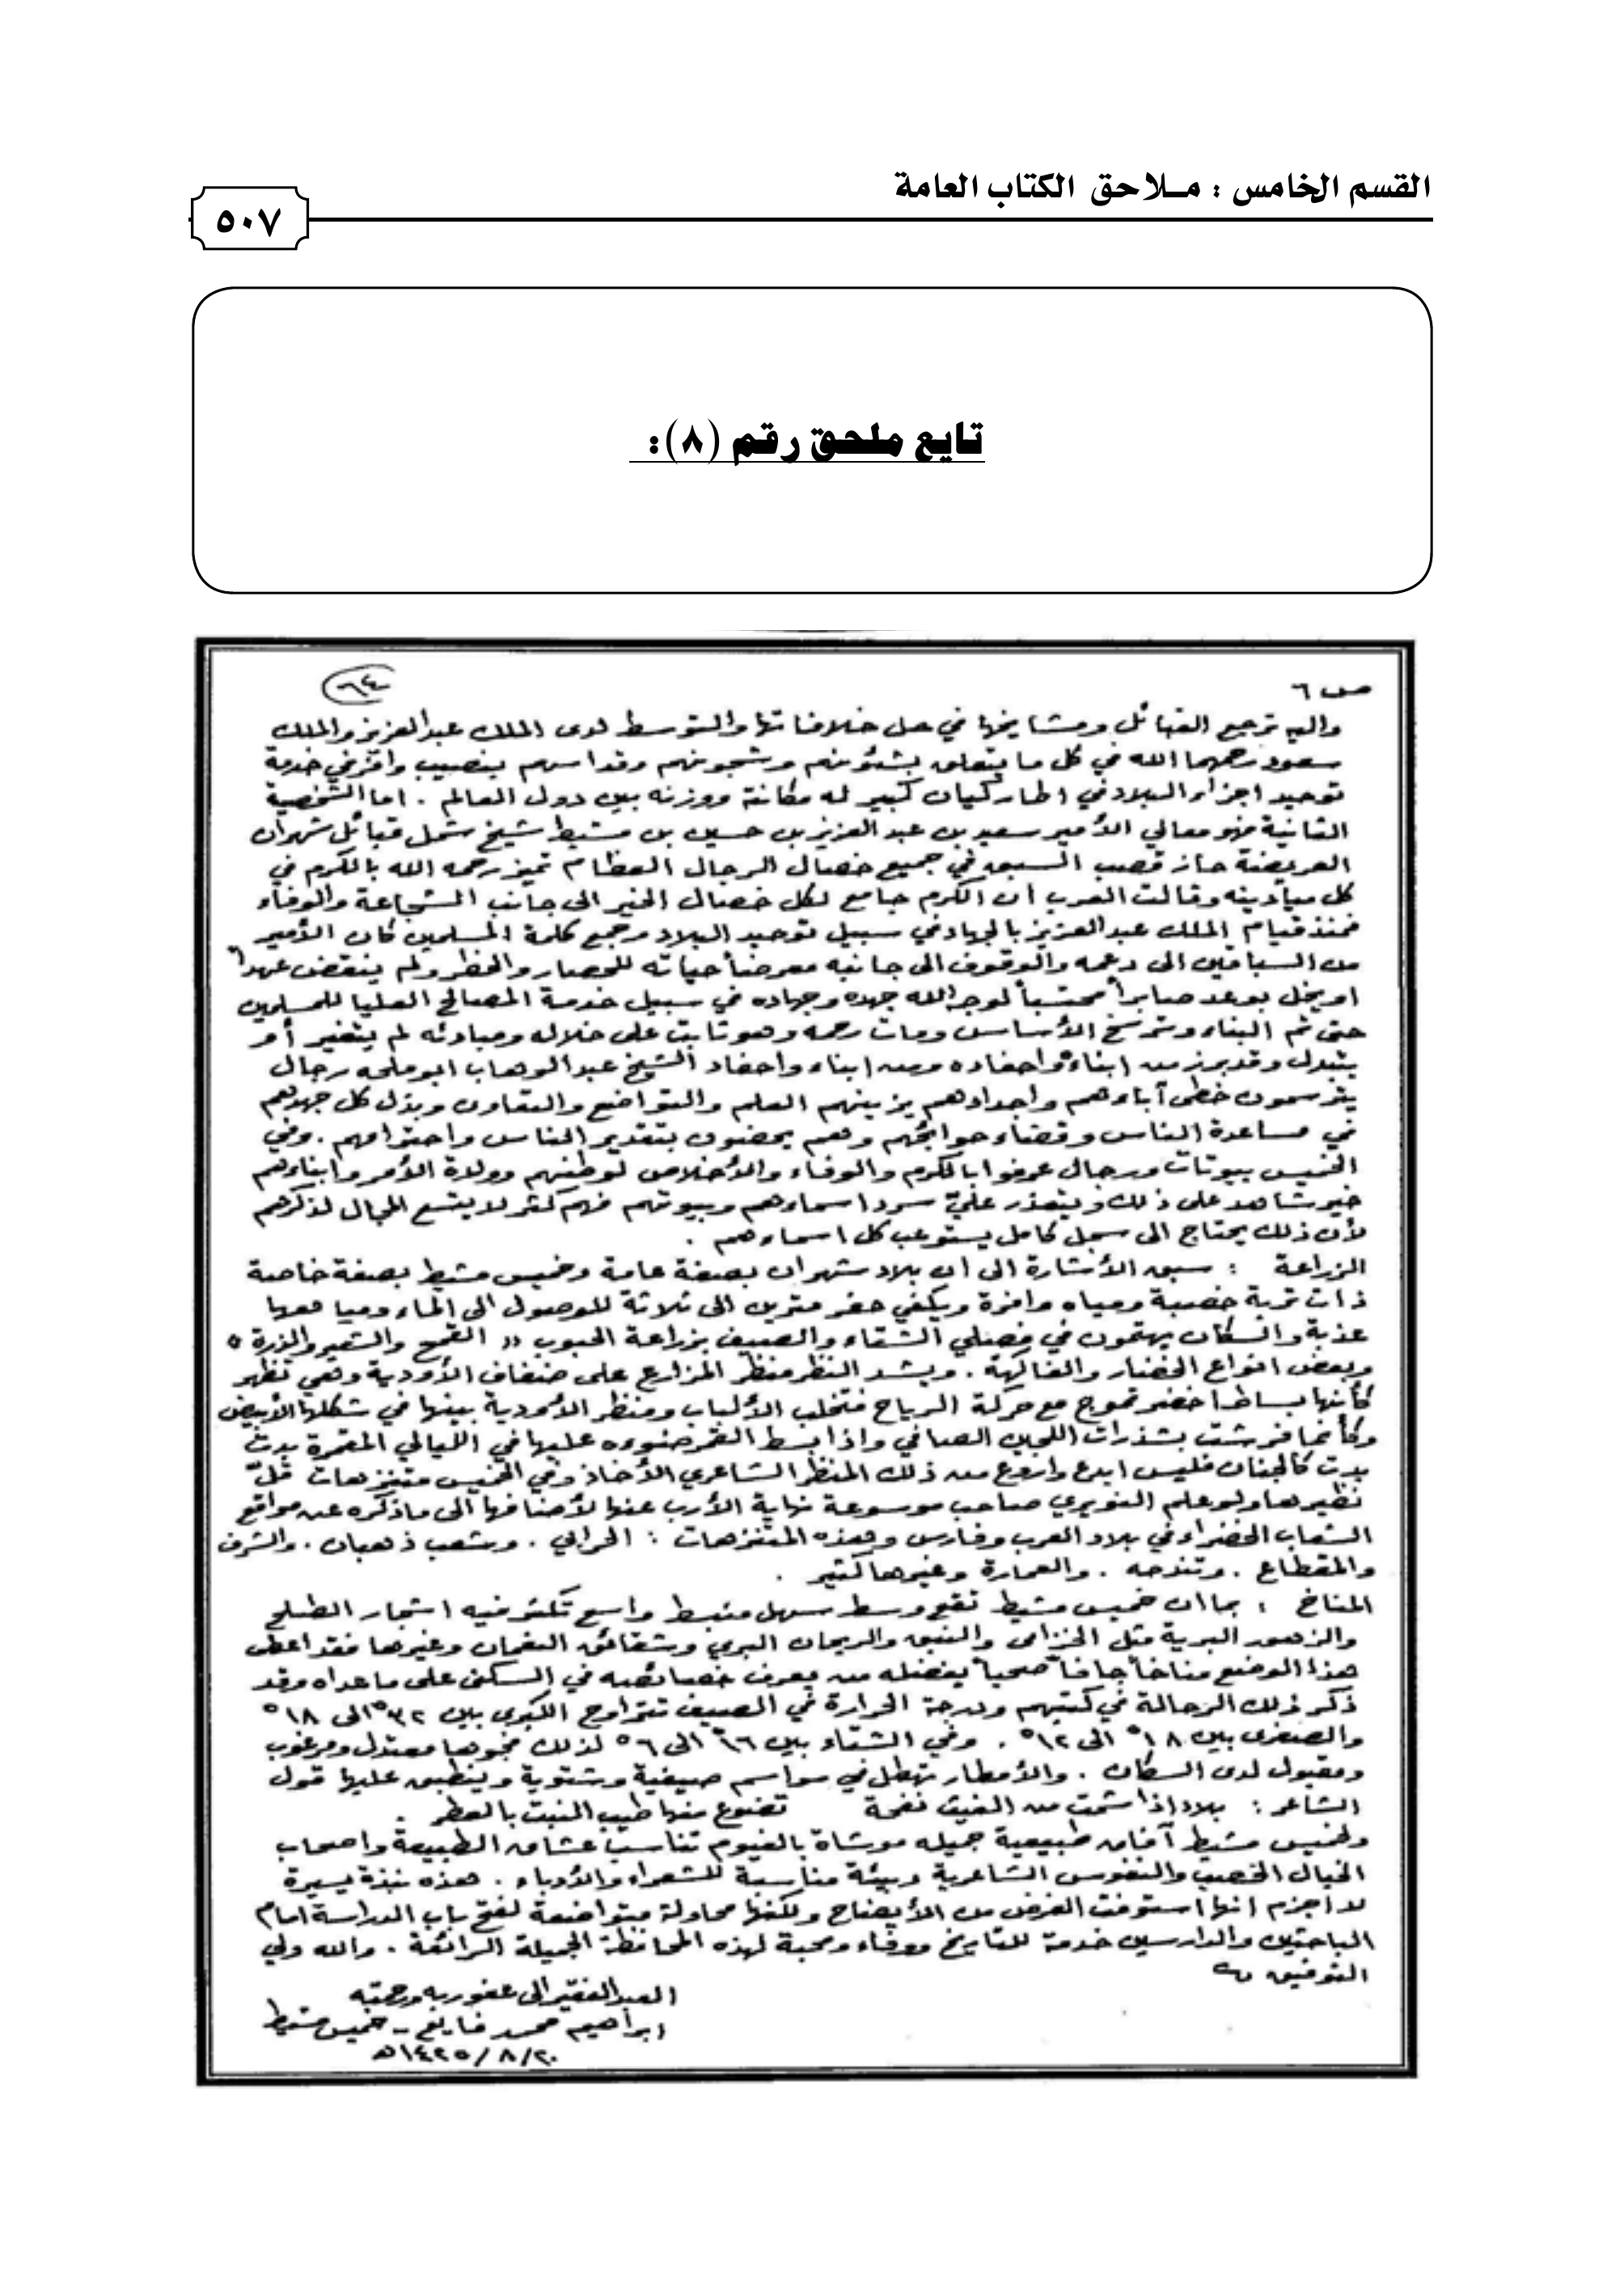 القسم الخامس : مـلاحق الكتاب العامة
٥٠٧
تابع ملحق رقم (٨):
ص ٦
٦٤
واليه ترجع القبائل ومشايخها في حل خلافاتها والتوسط لدى الملك عبدالعزيز والملك
سعود رحمهما الله في كل ما يتعلق بشئونهم وشجونهم وقد اسهم بنصيب وافر في خدمة
توحيد اجزاء البلاد في اطار كيان كبير له مكانة ووزنه بين دول العالم . اما الشخصية
الثانية فهو معالي الأمير سعيد بن عبد العزيز بن حسين بن مشيط شيخ شمل قبائل شهران
العريضة حاز قصب السبق في جميع خصال الرجال العظام تميز رحمه الله بالكرم في
كل ميادينه وقالت العرب ان الكرم جامع لكل خصال الخير الى جانب الشجاعة والوفاء
فمنذ قيام الملك عبد العزيز بالجهاد في سبيل توحيد البلاد وجمع كلمة المسلمين كان الأمير
من السباقين الى دعمه والوقوف الى جانبه معرضاً حياته للحصار والخطر ولم ينقض عهداً
او يخل بوعد صابراً محتسباً لوجه الله جهده وجهاده في سبيل خدمة المصالح العليا للمسلمين
حتى تم البناء وترسخ الأساس ومات رحمه وهو ثابت على خلاله ومبادئه لم يتغير أو
يتبدل وقد برز من ابناءه واحفاده ومن ابناء واحفاد الشيخ عبد الوهاب ابو ملحه رجال
يترسمون خطى آباءهم واجدادهم يزينهم العلم والتواضع والتعاون وبذل كل جهدهم
في مساعدة الناس وقضاء حوائجهم وهم يحضون بتقدير الناس واحترامهم . وفي
الخميس بيوتات ورجال عرفوا بالكرم والوفاء والأخلاص لوطنهم وولاة الأمر وابناءهم
خير شاهد على ذلك ويتعذر عليّ سرد اسماءهم وبيوتهم فهم كثر لا يتسع المجال لذكرهم
لأن ذلك يحتاج الى سجل كامل يستوعب كل اسماءهم .
الزراعة : سبق الأشارة الى ان بلاد شهران بصفة عامة وخميس مشيط بصفة خاصة
ذات تربة خصبة ومياه وافرة ويكفي حفر مترين الى ثلاثة للوصول الى الماء ومياهها
عذبة والسكان يهتمون في فصلي الشتاء والصيف بزراعة الحبوب " القمح والشعير والذرة "
وبعض انواع الخضار والفاكهة . ويشد النظر منظر المزارع على ضفاف الأودية وهي تظهر
كأنها بساط اخضر تموج مع حركة الرياح فتخلب الألباب ومنظر الأودية بينها في شكلها الأبيض
وكأنما فرشت بشذرات اللجين الصافي واذا بسط القمر ضوءه عليها في الليالي المقمرة بدت
بدت كالجنان فليس ابدع واروع من ذلك المنظر الشاعري الأخاذ وفي الخميس متنزهات قلّ
نظيرها ولو علم النويري صاحب موسوعة نهاية الأرب عنها لأضافها الى ماذكره عن مواقع
الشعاب الخضراء في بلاد العرب وفارس وهذه المتنزهات : الحرابي . وشعب ذهبان . والشرف
والمقطاع . وتندحه . والعمارة وغيرها كثير .
المناخ : بما ان خميس مشيط تقع وسط سهل منبسط واسع تكثر فيه اشجار الطلح
والزهور البرية مثل الخزامى والنبق والريحان البري وشقائق النعمان وغيرها فقد اعطى
هذا الوضع مناخاً جافاً صحياً يفضله من يعرف خصائصه في السكن على ماعداه وقد
ذكر ذلك الرحالة في كتبهم ودرجة الحرارة في الصيف تتراوح الكبرى بين ٣٢° الى ١٨°
والصغرى بين ١٨° الى ١٢° . وفي الشتاء بين ١٦° الى ٦° لذلك فجوها معتدل ومرغوب
ومقبول لدى السكان . والأمطار تهطل في مواسم صيفية وشتوية وينطبق عليها قول
الشاعر : بلاد اذا شمت من الغيث نفحة تضوع منها طيب النبت بالعطر .
ولخميس مشيط آفاق طبيعية جميله موشاة بالغيوم تناسب عشاق الطبيعة واصحاب
الخيال الخصب والنفوس الشاعرية وبيئة مناسبة للشعراء والأدباء . هذه نبذة يسيرة
لا اجزم انها استوفت الغرض من الأيضاح ولكنها محاولة متواضعة لفتح باب الدراسة امام
الباحثين والدارسين خدمة للتاريخ ووفاء ومحبة لهذه المحافظة الجميلة الرائعة . والله ولي
التوفيق
العبد الفقير الى عفو ربه ورحمته
ابراهيم محمد فايع - خميس مشيط
٢٠/٨/١٤٢٥هـ